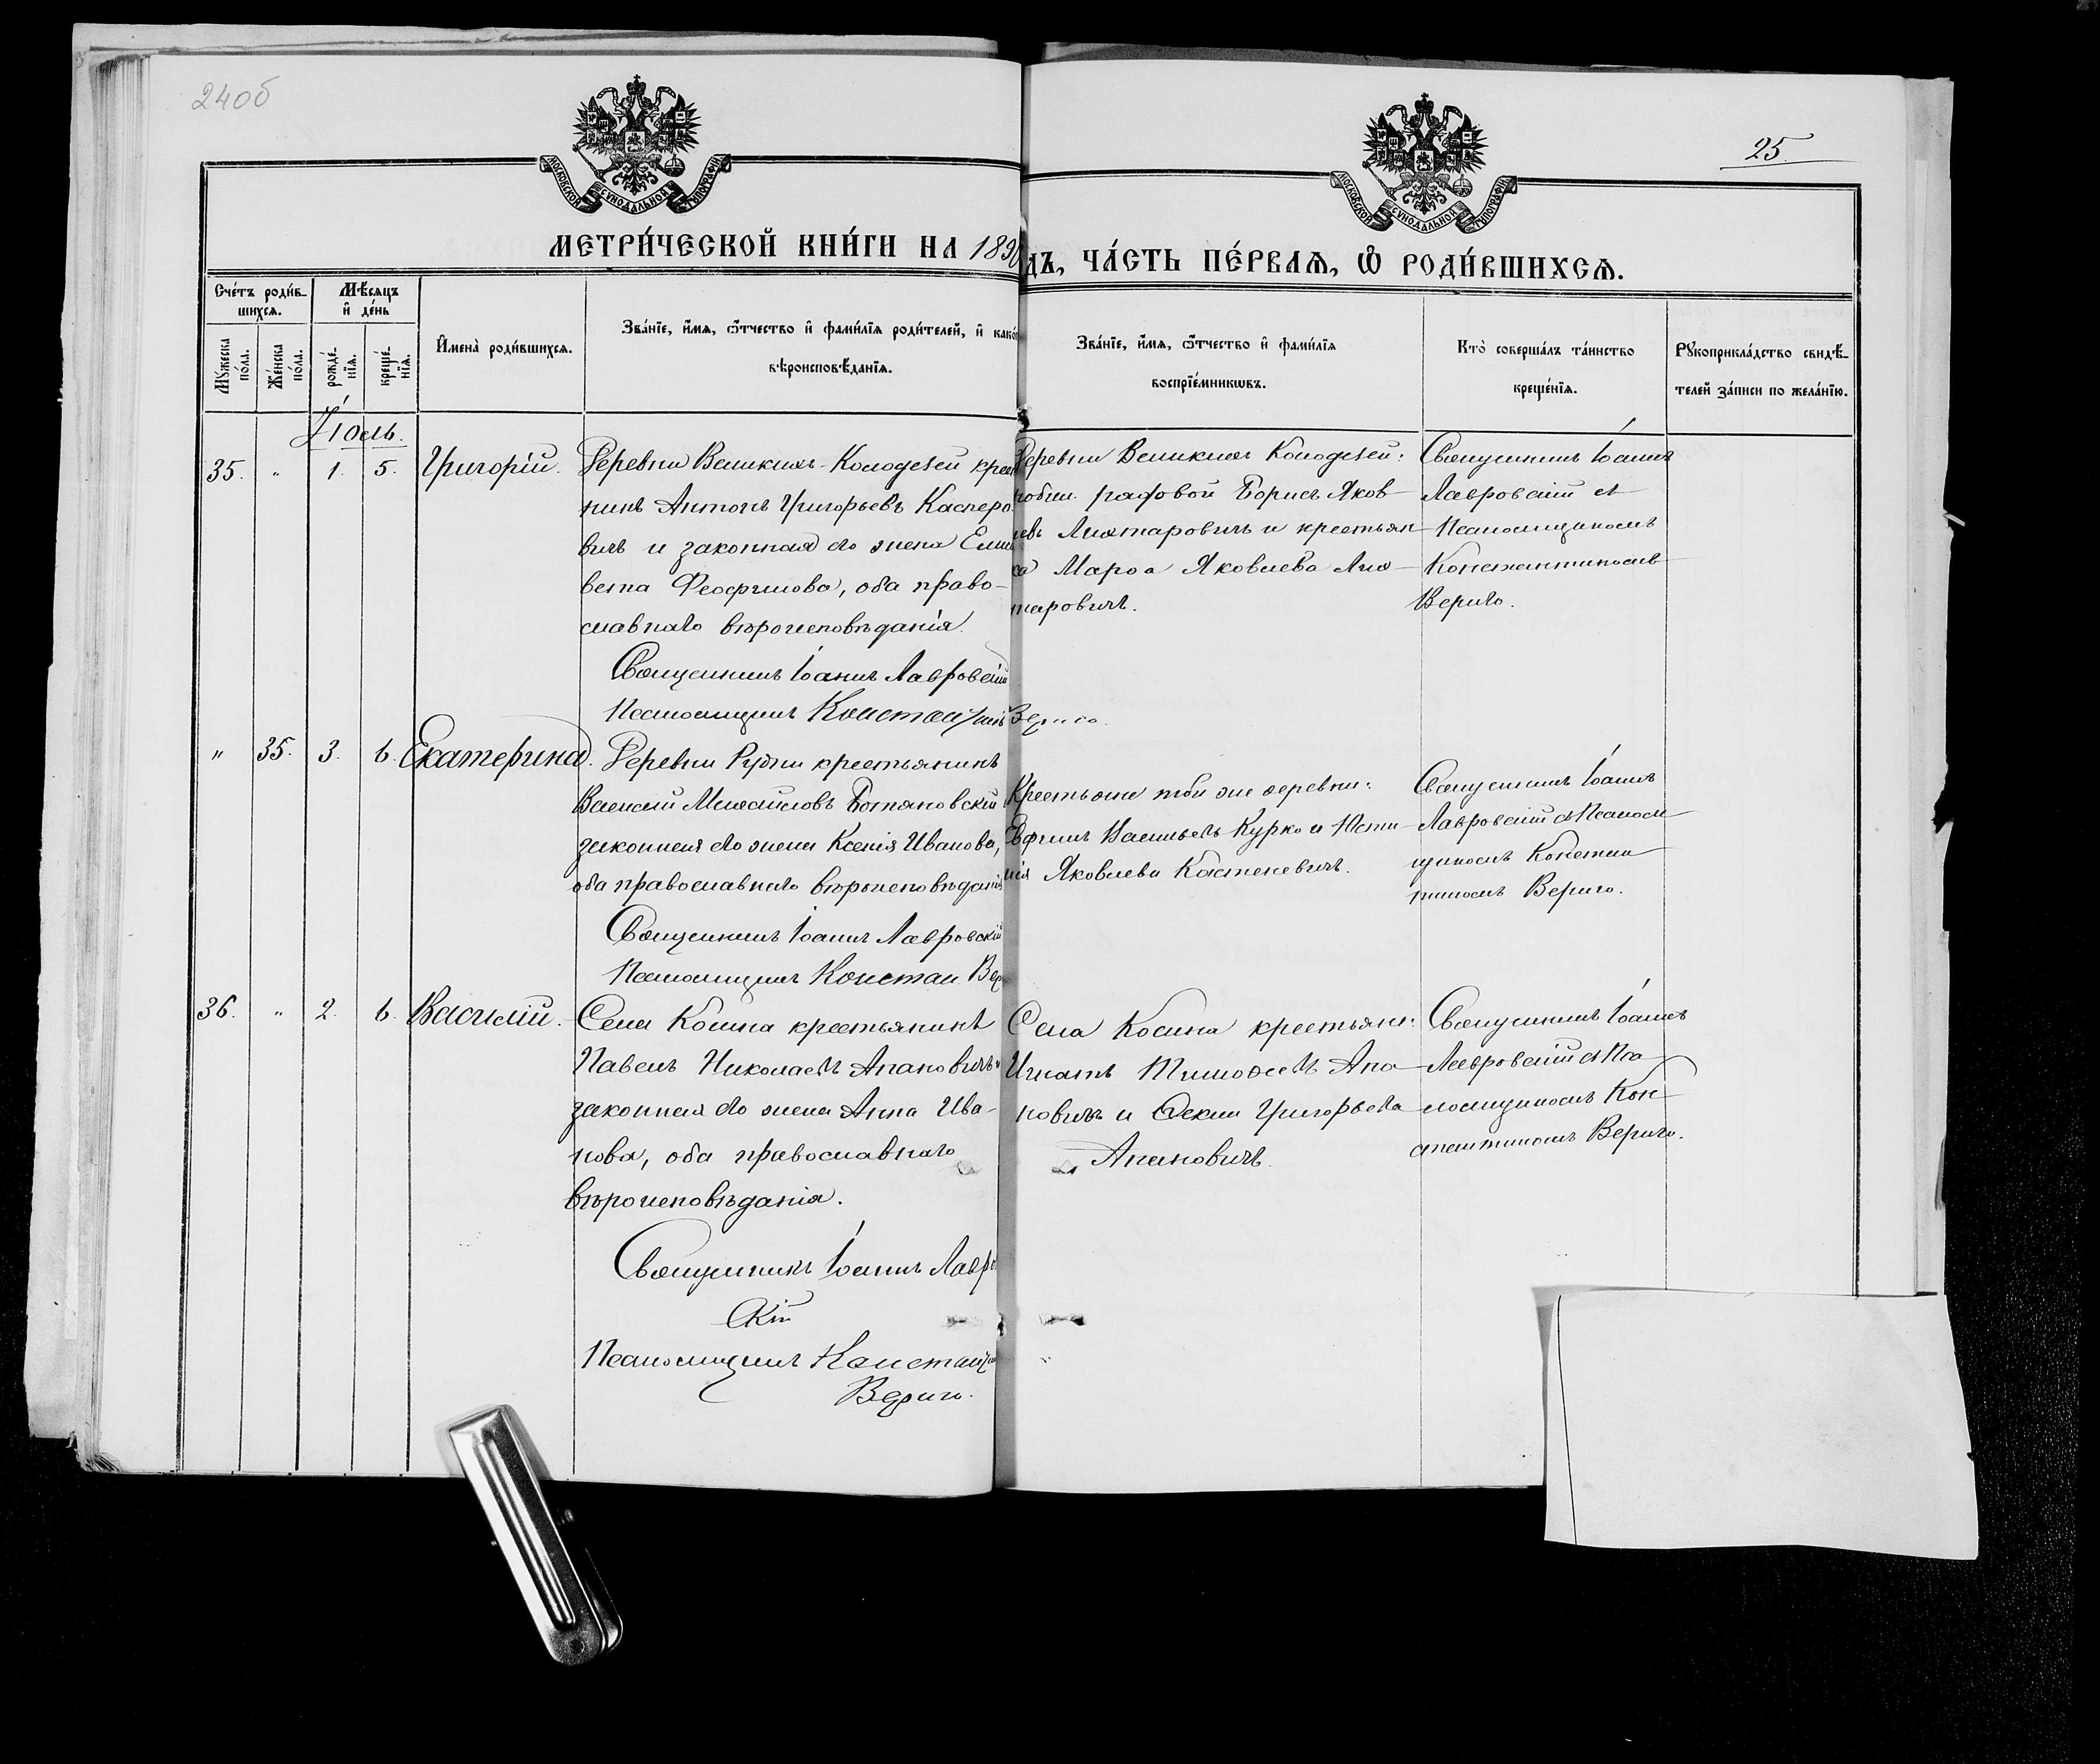 240б
25.
МОСКОВСКОЙ СУНОДАЛЬНОЙ ТИПОГРАФІИ
МОСКОВСКОЙ СУНОДАЛЬНОЙ ТИПОГРАФІИ
МЕТРИ́ЧЕСКОЙ КНИ́ГИ НА 1890
ДЪ, ЧА́СТЬ ПЕ́РВАѦ, Ѡ РОДИ́ВШИХСѦ.
Сче́тъ роди́в-
шихсѧ.
Мѣ́сѧцъ
и҆ де́нь
Му́жеска по́ла.
Же́нска по́ла.
рожде́-
нїѧ.
креще́-
нїѧ.
И҆мена̀ роди́вшихсѧ.
Зва́нїе, и҆́мѧ, ѻ҆́тчество и҆ фами́лїѧ роди́телей, и҆ како́
вѣроисповѣ́данїѧ.
Зва́нїе, и҆́мѧ, ѻ҆́тчество и҆ фами́лїѧ
воспрїе́мникѡвъ.
Кто̀ соверша́лъ та́инство
креще́нїѧ.
Рукоприкла́дство свидѣ́-
телей за́писи по жела́нїю.
Іюль.
35. " 1. 5. Григорій.
Деревни Великихъ-Колодезей крестья
нинъ Антонъ Григорьевъ Касперо
вичъ и законная его жена Елиса
вета Феофилова, оба право-
славнаго вѣроисповѣданія.
Священникъ Іоаннъ Лавровскій
Псаломщикъ Константинъ Вериго.
Деревни Великихъ Колодезей:
рядовой Борисъ Яков
левъ Лихтаровичъ и крестьян
ка Марѳа Яковлева Лих-
таровичъ.
Священникъ Іоаннъ
Лавровскій съ
Псаломщикомъ
Константиномъ
Вериго.
" 35. 3. 6. Екатерина.
Деревни Рудни крестьянинъ
Василій Михайловъ Ботяновскій
законная его жена Ксенія Иванова,
оба православнаго вѣроисповѣданія
Священникъ Іоаннъ Лавровскій
Псаломщикъ Констан Вер
Крестьяне той же деревни:
Ефимъ Васильевъ Курко и Юсти
нія Яковлева Кастеневичъ.
Священникъ Іоаннъ
Лавровскій съ Псалом
щикомъ Констан
тиномъ Вериго.
36. " 2. 6. Василій.
Села Косина крестьянинъ
Павелъ Николаевъ Апановичъ и
законная его жена Анна Ива-
нова, оба православнаго
вѣроисповѣданія.
Священникъ Іоаннъ Лавров
скій
Псаломщикъ Константин
Вериго.
Села Косина крестьяне:
Игнатъ Тимоѳеевъ Апа
новичъ и Ѳекла Григорьева
Апановичъ.
Священникъ Іоаннъ
Лавровскій съ Пса
ломщикомъ Кон
стантиномъ Вериго.